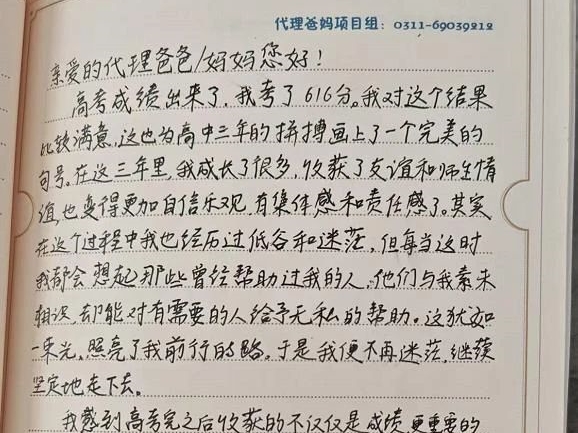 代理爸妈项目组：0311-69039212
亲爱的代理爸爸/妈妈您好！
高考成绩出来了，我考了616分。我对这个结果
比较满意，这也为高中三年的拼搏画上了一个完美的
句号。在这三年里，我成长了很多，收获了友谊和师生情
谊，也变得更加自信乐观，有集体感和责任感了。其实
在这个过程中我也经历过低谷和迷茫，但每当这时
我都会想起那些曾经帮助过我的人，他们与我素未
相识，却能对有需要的人给予无私的帮助。这犹如
一束光，照亮了我前行的路。于是我便不再迷茫，继续
坚定地走下去。
我感到高考完之后收获的不仅仅是成绩，更重要的